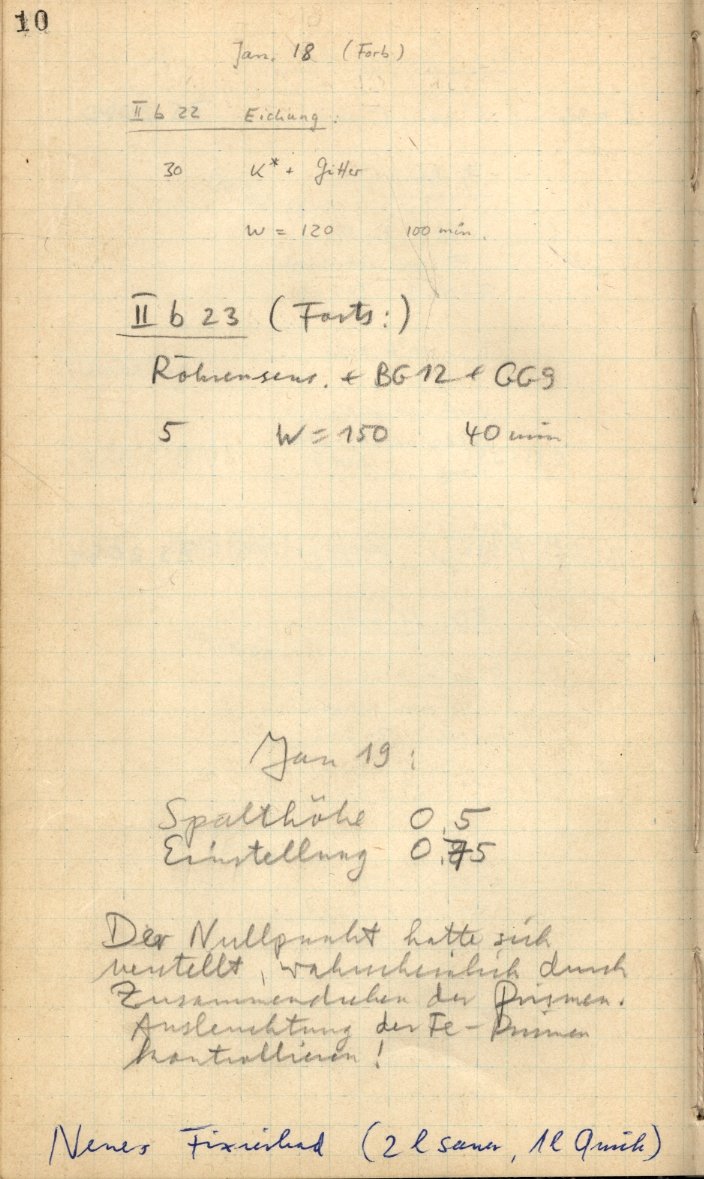 10
Jan. 18 (Forb)
II b 22 Eichung:
30 K* + Gitter
W = 120 100 min.
II b 23 (Forts:)
Röhrensens. + BG 12 + GG9
5 W = 150 40 min
Jan 19:
Spalthöhe 0,5
Einstellung 0.75
Der Nullpunkt hatte sich
verstellt, wahrscheinlich durch
Zusammendrehen der Prismen.
Ausleuchtung der Fe - Prismen
kontrollieren!
Neues Fixierbad (2 l sauer, 1 l